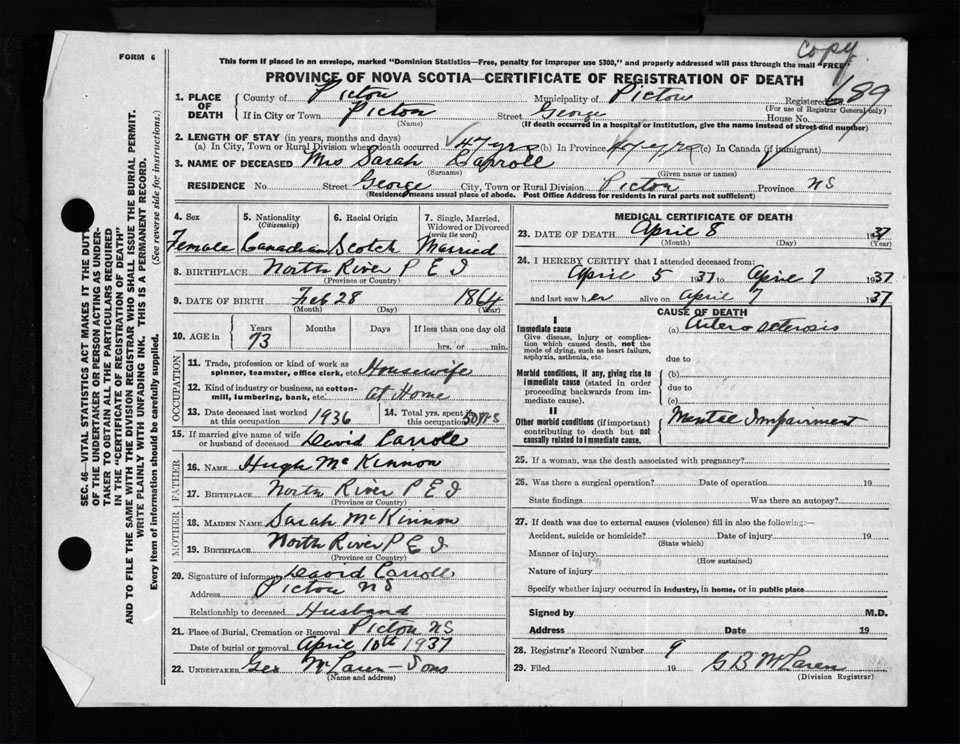 copy
689
FORM 6
This form if placed in an envelope, marked "Dominion Statistics—Free, penalty for improper use $300," and properly addressed will pass through the mail "FREE"
PROVINCE OF NOVA SCOTIA—CERTIFICATE OF REGISTRATION OF DEATH
1. PLACE OF DEATH
County of Pictou Municipality of Pictou Registered No.
(For use of Registrar General only)
If in City or Town Pictou Street George House No.
(Name) (If death occurred in a hospital or institution, give the name instead of street and number)
2. LENGTH OF STAY (in years, months and days)
(a) In City, Town or Rural Division where death occurred 47 yrs (b) In Province (c) In Canada (if immigrant)
3. NAME OF DECEASED Mrs Sarah Carroll
(Surname) (Given name or names)
RESIDENCE No. Street George City, Town or Rural Division Pictou Province NS
(Residence means usual place of abode. Post Office Address for residents in rural parts not sufficient)
4. Sex 5. Nationality (Citizenship) 6. Racial Origin 7. Single, Married, Widowed or Divorced (write the word)
Female Canadian Scotch Married
8. BIRTHPLACE North River P E I
(Province or Country)
9. DATE OF BIRTH Feb 28 1864
(Month) (Day) (Year)
10. AGE in Years Months Days If less than one day old
73 hrs. or min.
OCCUPATION
11. Trade, profession or kind of work as spinner, teamster, office clerk, etc. Housewife
12. Kind of industry or business, as cotton-mill, lumbering, bank, etc. at Home
13. Date deceased last worked at this occupation 1936 14. Total yrs. spent in this occupation 50 yrs
15. If married give name of wife or husband of deceased David Carroll
FATHER
16. NAME Hugh McKinnon
17. BIRTHPLACE North River P E I
(Province or Country)
MOTHER
18. MAIDEN NAME Sarah McKinnon
19. BIRTHPLACE North River P E I
(Province or Country)
20. Signature of informant David Carroll
Address Pictou NS
Relationship to deceased Husband
21. Place of Burial, Cremation or Removal Pictou NS
Date of burial or removal April 10th 1937
22. UNDERTAKER Geo McLaren - Sons
(Name and address)
MEDICAL CERTIFICATE OF DEATH
23. DATE OF DEATH April 8 1937
(Month) (Day) (Year)
24. I HEREBY CERTIFY that I attended deceased from:
April 5 1937 to April 7 1937
and last saw her alive on April 7 1937
CAUSE OF DEATH
I
Immediate cause (a) Arterosclerosis
Give disease, injury or complication which caused death, not the mode of dying, such as heart failure, asphyxia, asthenia, etc.
due to
Morbid conditions, if any, giving rise to immediate cause (stated in order proceeding backwards from immediate cause). (b)
due to
(c)
II
Other morbid conditions (if important) contributing to death but not causally related to immediate cause. Mental Impairment
25. If a woman, was the death associated with pregnancy?
26. Was there a surgical operation? Date of operation 19
State findings Was there an autopsy?
27. If death was due to external causes (violence) fill in also the following:—
Accident, suicide or homicide? Date of injury 19
(State which)
Manner of injury
(How sustained)
Nature of injury
Specify whether injury occurred in industry, in home, or in public place
Signed by M.D.
Address Date 19
28. Registrar's Record Number 9
29. Filed 19 G B McLaren
(Division Registrar)
SEC. 46—VITAL STATISTICS ACT MAKES IT THE DUTY
OF THE UNDERTAKER OR PERSON ACTING AS UNDER-
TAKER TO OBTAIN ALL THE PARTICULARS REQUIRED
IN THE "CERTIFICATE OF REGISTRATION OF DEATH"
AND TO FILE THE SAME WITH THE DIVISION REGISTRAR WHO SHALL ISSUE THE BURIAL PERMIT.
WRITE PLAINLY WITH UNFADING INK. THIS IS A PERMANENT RECORD.
Every item of information should be carefully supplied. (See reverse side for instructions.)